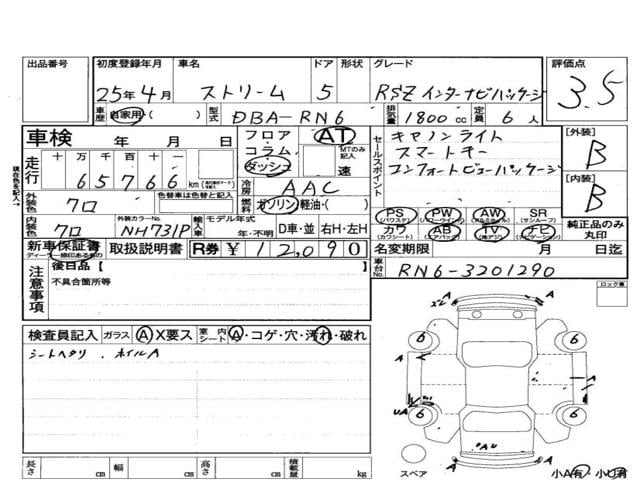 出品番号 初度登録年月 車名 ドア 形状 グレード 評価点
25年4月 ストリーム 5 RSZ インターナビパッケージ 3.5
車歴 自家用( ) 型式 DBA-RN6 排気量 1800cc 定員 6人
車検 年 月 日
フロア・コラム・ダッシュ AT MTのみ記入 速
セールスポイント キセノンライト
スマートキー
コンフォートビューパッケージ
[外装] B
[内装] B
走行 十 万 千 百 十 一
65766 km
冷房 AAC
外装色 クロ 色替車は色替と記入
燃料 ガソリン 軽油( )
内装色 クロ 外装カラーNo. NH731P 輸入車 モデル年式 年・不明 D車・並 右H・左H
PS (パワステ) PW (パワーウィンド) AW (アルミホイル) SR (サンルーフ)
カワ (カワシート) AB (エアバック) TV (地デジ) ナビ (ナビゲーション)
純正品のみ丸印
新車保証書 取扱説明書 R券 ¥12,090 名変期限 月 日迄
車台No. RN6-3201290
注意事項 後日品【 】
不具合箇所等
ロック車
検査員記入 ガラス A X要ス 室内シート A・コゲ・穴・汚れ・破れ
シートヘタリ . ホイルA
A A 6 6 A A UA 6 6 A AU
スペア 小A有・小U有
長さ cm 幅 cm 高さ cm 積載量 kg